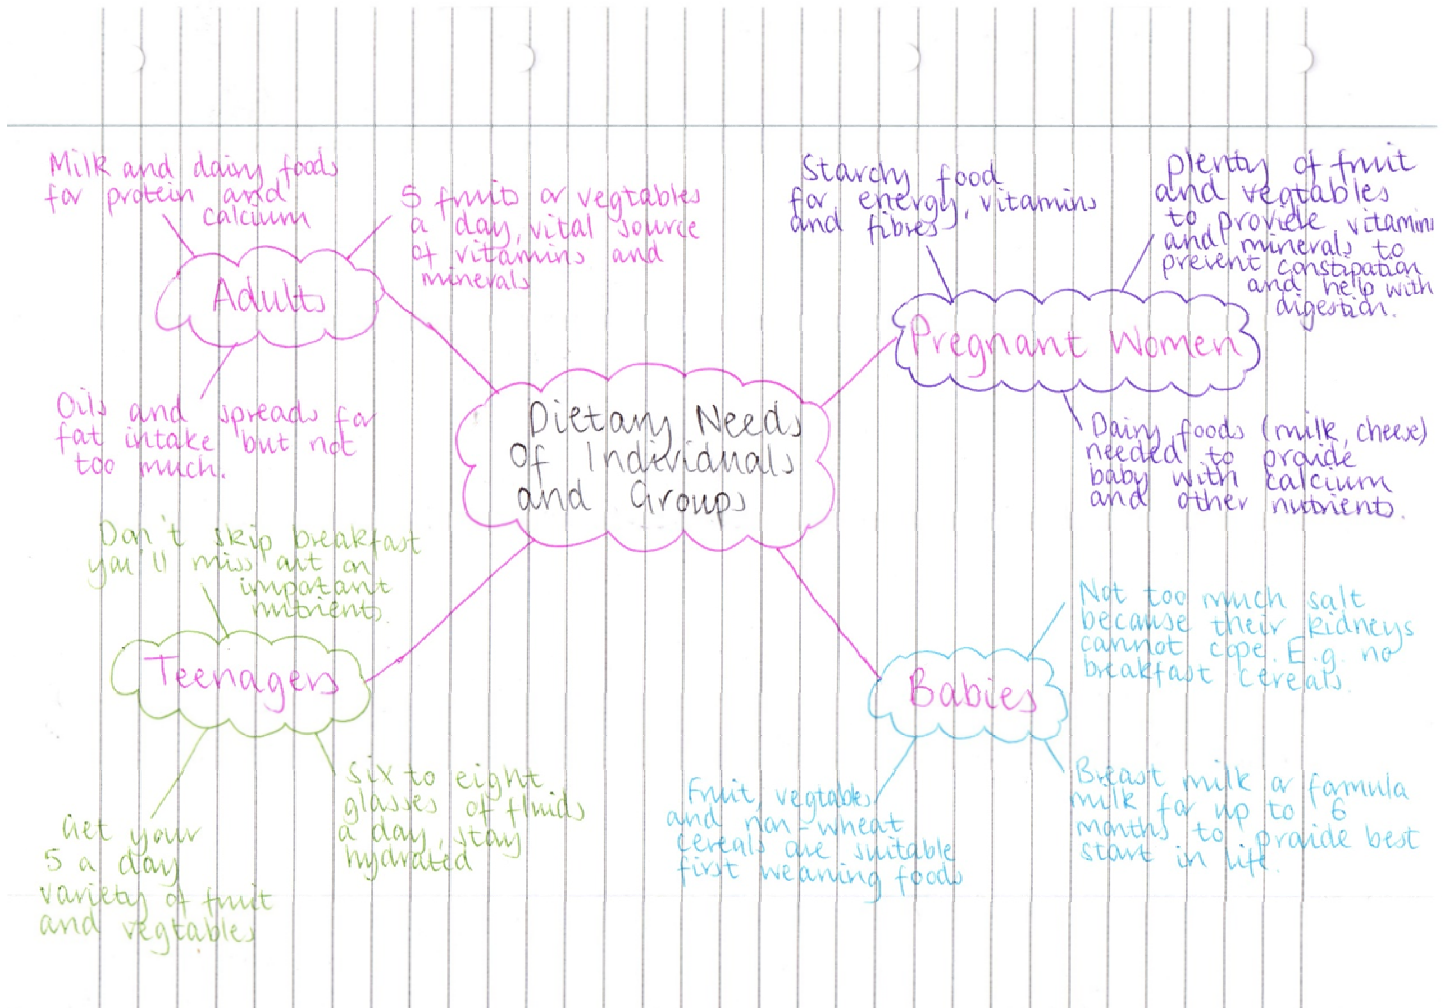 Dietary Needs
of Individuals
and Groups
Adults
Milk and dairy foods
for protein and
calcium
5 fruits or vegtables
a day, vital source
of vitamins and
minerals
Oils and spreads for
fat intake but not
too much.
Pregnant Women
Starchy food
for energy, vitamins
and fibres
plenty of fruit
and vegtables
to provide vitamins
and minerals to
prevent constipation
and help with
digestion.
Dairy foods (milk, cheese)
needed to provide
baby with calcium
and other nutrients.
Teenagers
Don't skip breakfast
you'll miss out on
important
nutrients.
Get your
5 a day
variety of fruit
and vegtables
six to eight
glasses of fluids
a day, stay
hydrated
Babies
Not too much salt
because their kidneys
cannot cope. E.g. no
breakfast cereals
Fruit, vegtables
and non-wheat
cereals are suitable
first weaning foods
Breast milk or formula
milk for up to 6
months to provide best
start in life.